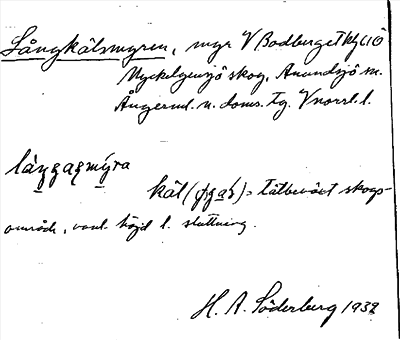 Långkälsmyren, myr V Bodberget
Myckelgensjö skog, Anundsjö sn.
Ångerml. n. doms. tg. Vnorrl. l.
käl = tätbeväxt skogs-
område, vanl. höjd l. sluttning.
H. A. Söderberg 1932